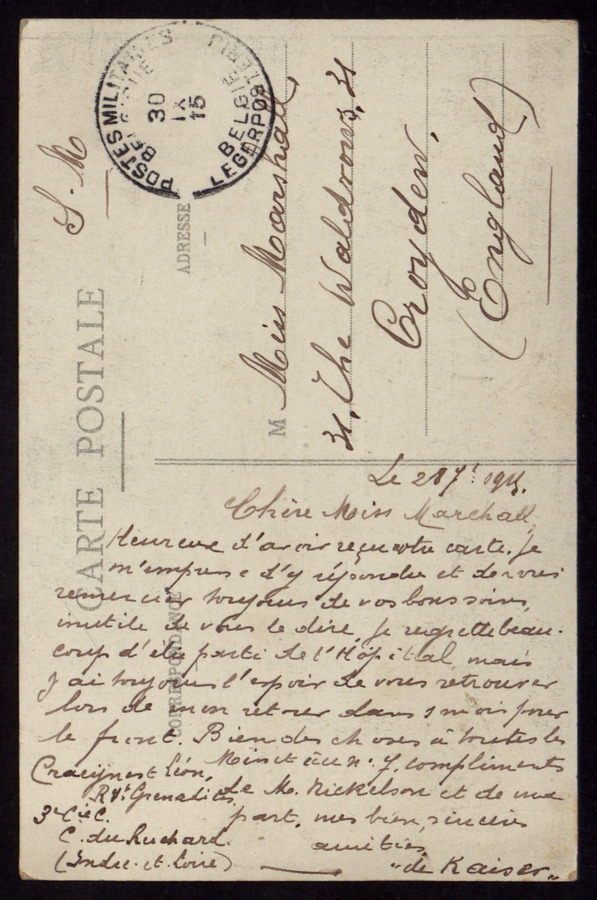 POSTES MILITAIRES
BELGIQUE
30
IX
15
BELGIE
LEGERPOSTERIJ
S. M
CARTE POSTALE
ADRESSE
M Miss Marshall
31, The Waldrons, 31
Croyden,
(England)
CORRESPONDANCE
Le 28 7! 1915.
Chère Miss Marchall,
Heureux d'avoir reçu votre carte. Je
m'empresse d'y répondre et de vous
remercier toujours de vos bons soins,
inutile de vous le dire, Je regrette beau-
coup d'être parti de l'Hôpital, mais
J'ai toujours l'espoir de vous retrouver
lors de mon retour dans 1 mois pour
le front. Bien des choses à toutes les
Miss et au n. 7, compliments
de M. Nickelson et de ma
part, mes bien sincères
amitiés
"de Kaiser"
Craeijnest Léon,
Rgt Grenadiers
3e Cie C.
C. du Ruchard
(Indre-et-Loire)